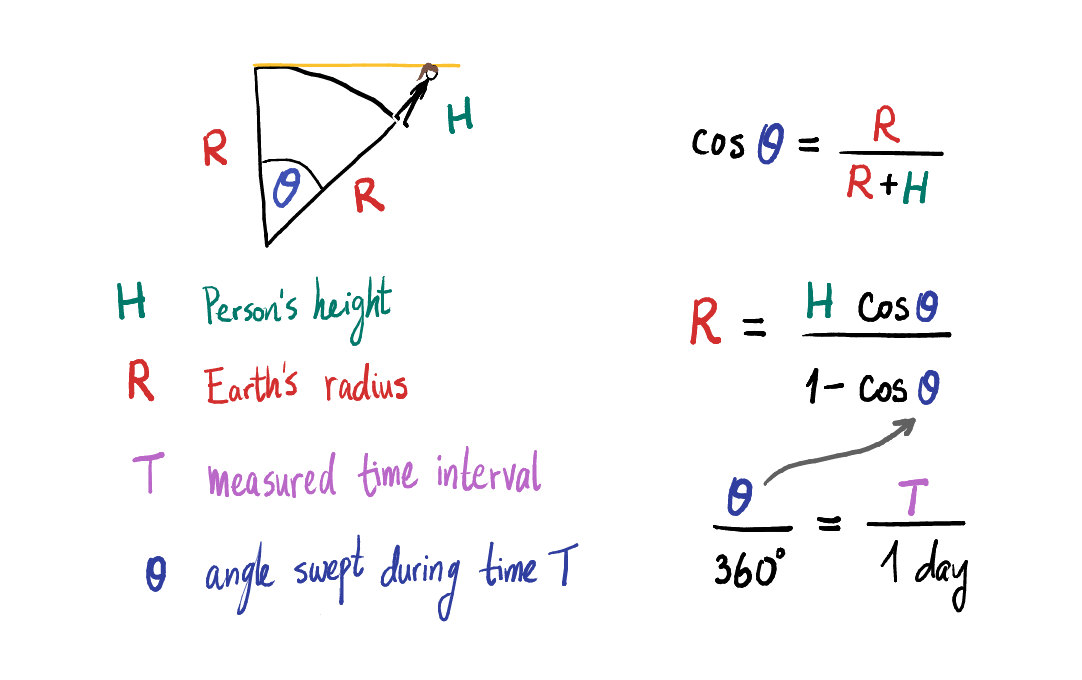 R
θ
R
H
cos θ = R / R + H
H Person's height
R Earth's radius
T measured time interval
θ angle swept during time T
R = H cos θ / 1 - cos θ
θ / 360° = T / 1 day